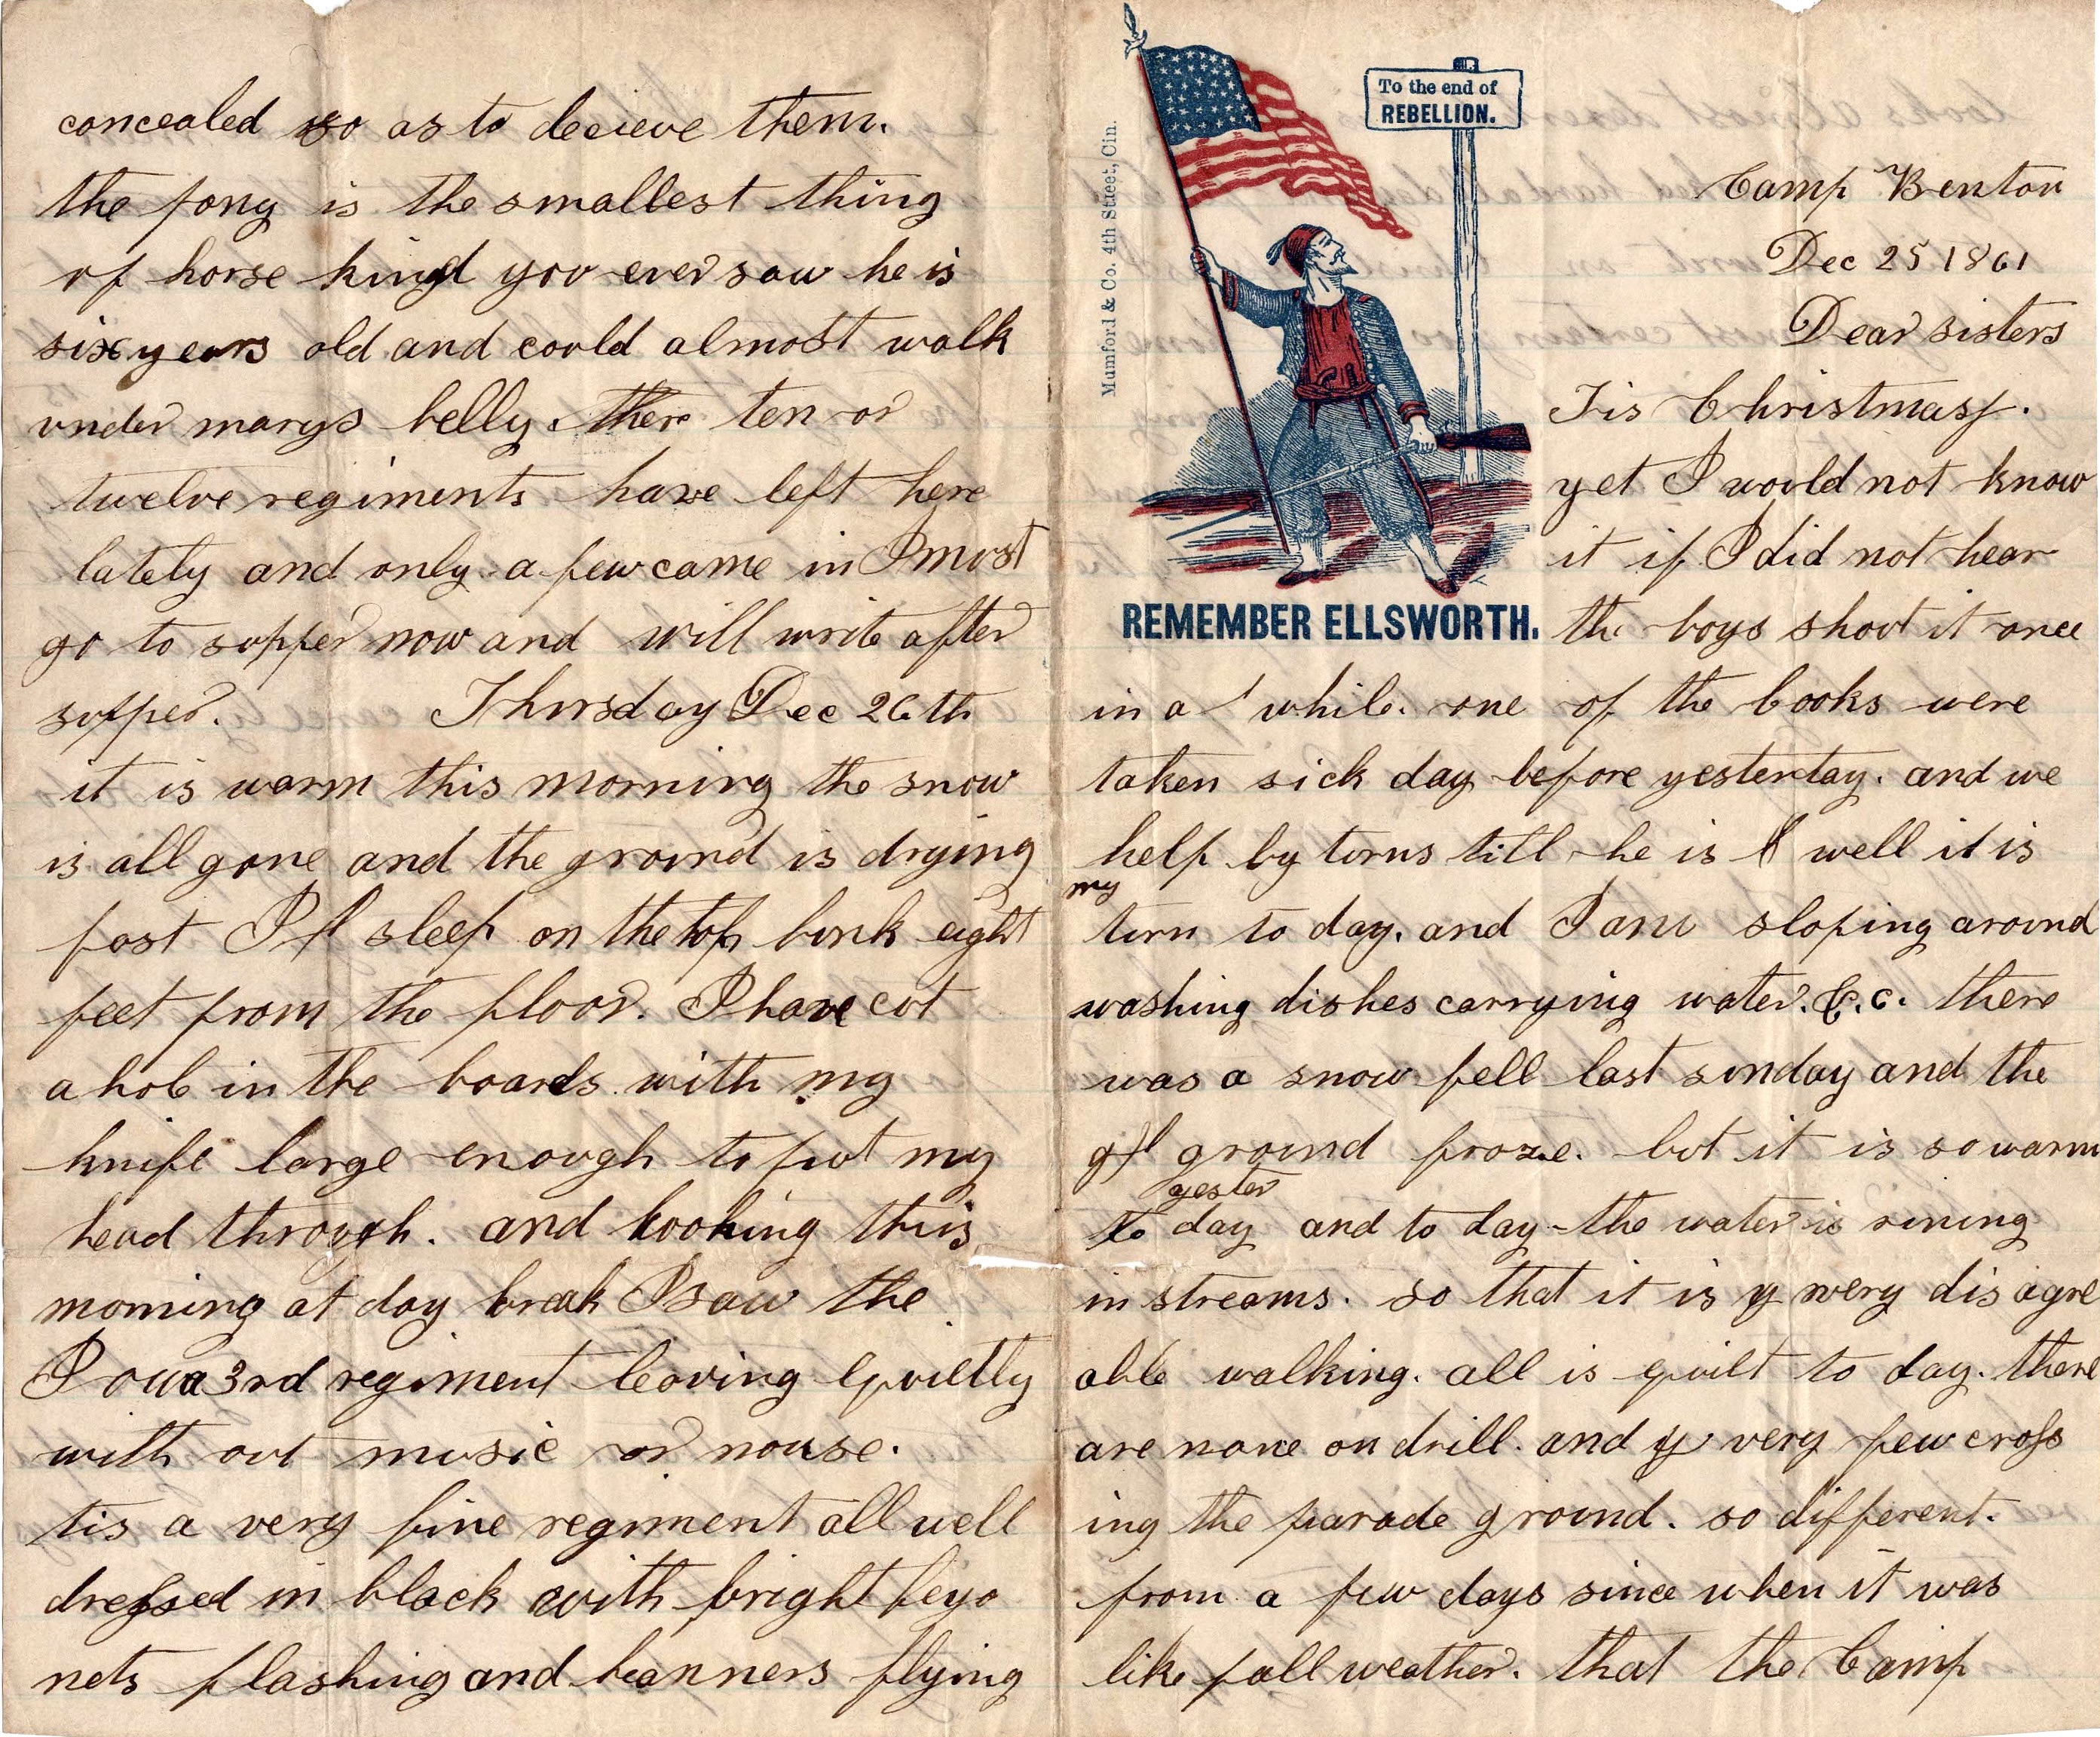 To the end of
REBELLION.
Mumford & Co. 4th Street, Cin.
REMEMBER ELLSWORTH.
Camp Benton
Dec 25 1861
Dear sisters
Tis Christmass.
yet I would not know
it if I did not hear
the boys shout it once
in a while. one of the books were
taken sick day before yestertay. and we
help by turns till he is well it is
my
turn to day. and I am sloping around
washing dishes carrying water. &.c. there
was a snow fell last sunday and the
ground froze. but it is so warm
yester
to day and to day the water is rining
in streams. so that it is very dis agre
able walking. all is quilt to day. there
are none on drill. and very few cross
ing the parade ground. so different.
from a few days since when it was
like fall weather. that the Camp
concealed so as to decieve them.
the pony is the smallest thing
of horse kind you ever saw he is
six years old and could almost walk
under marys belly. there ten or
twelve regiments have left here
lately and only a few came in I must
go to supper now and will write after
supper. Thursday Dec 26th
it is warm this morning the snow
is all gone and the ground is drying
fast I sleep on the top bunk eight
feet from the floor. I have cut
a hole in the boards with my
knife large enough to put my
head through. and looking this
morning at day break I saw the
Iowa 3rd regiment leaving quiltly
with out music or nouse.
tis a very fine regiment all well
dressed in black with bright beyo
nets flashing and banners flying